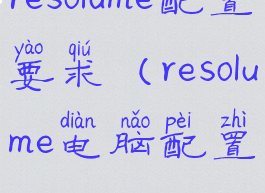 resolume配置
yào qiú
要求（resolu
diàn nǎo pèi zhì
me电脑配置